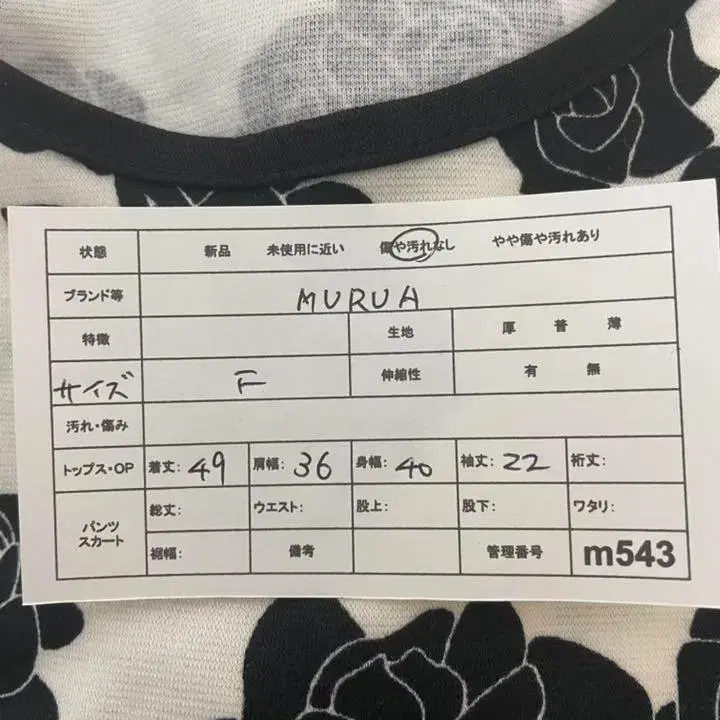 状態 新品 未使用に近い 傷や汚れなし やや傷や汚れあり
ブランド等 MURUA
特徴 生地 厚 普 薄
サイズ F 伸縮性 有 無
汚れ・傷み
トップス・OP 着丈: 49 肩幅: 36 身幅: 40 袖丈: 22 裄丈:
パンツ スカート 総丈: ウエスト: 股上: 股下: ワタリ:
裾幅: 備考 管理番号 m543